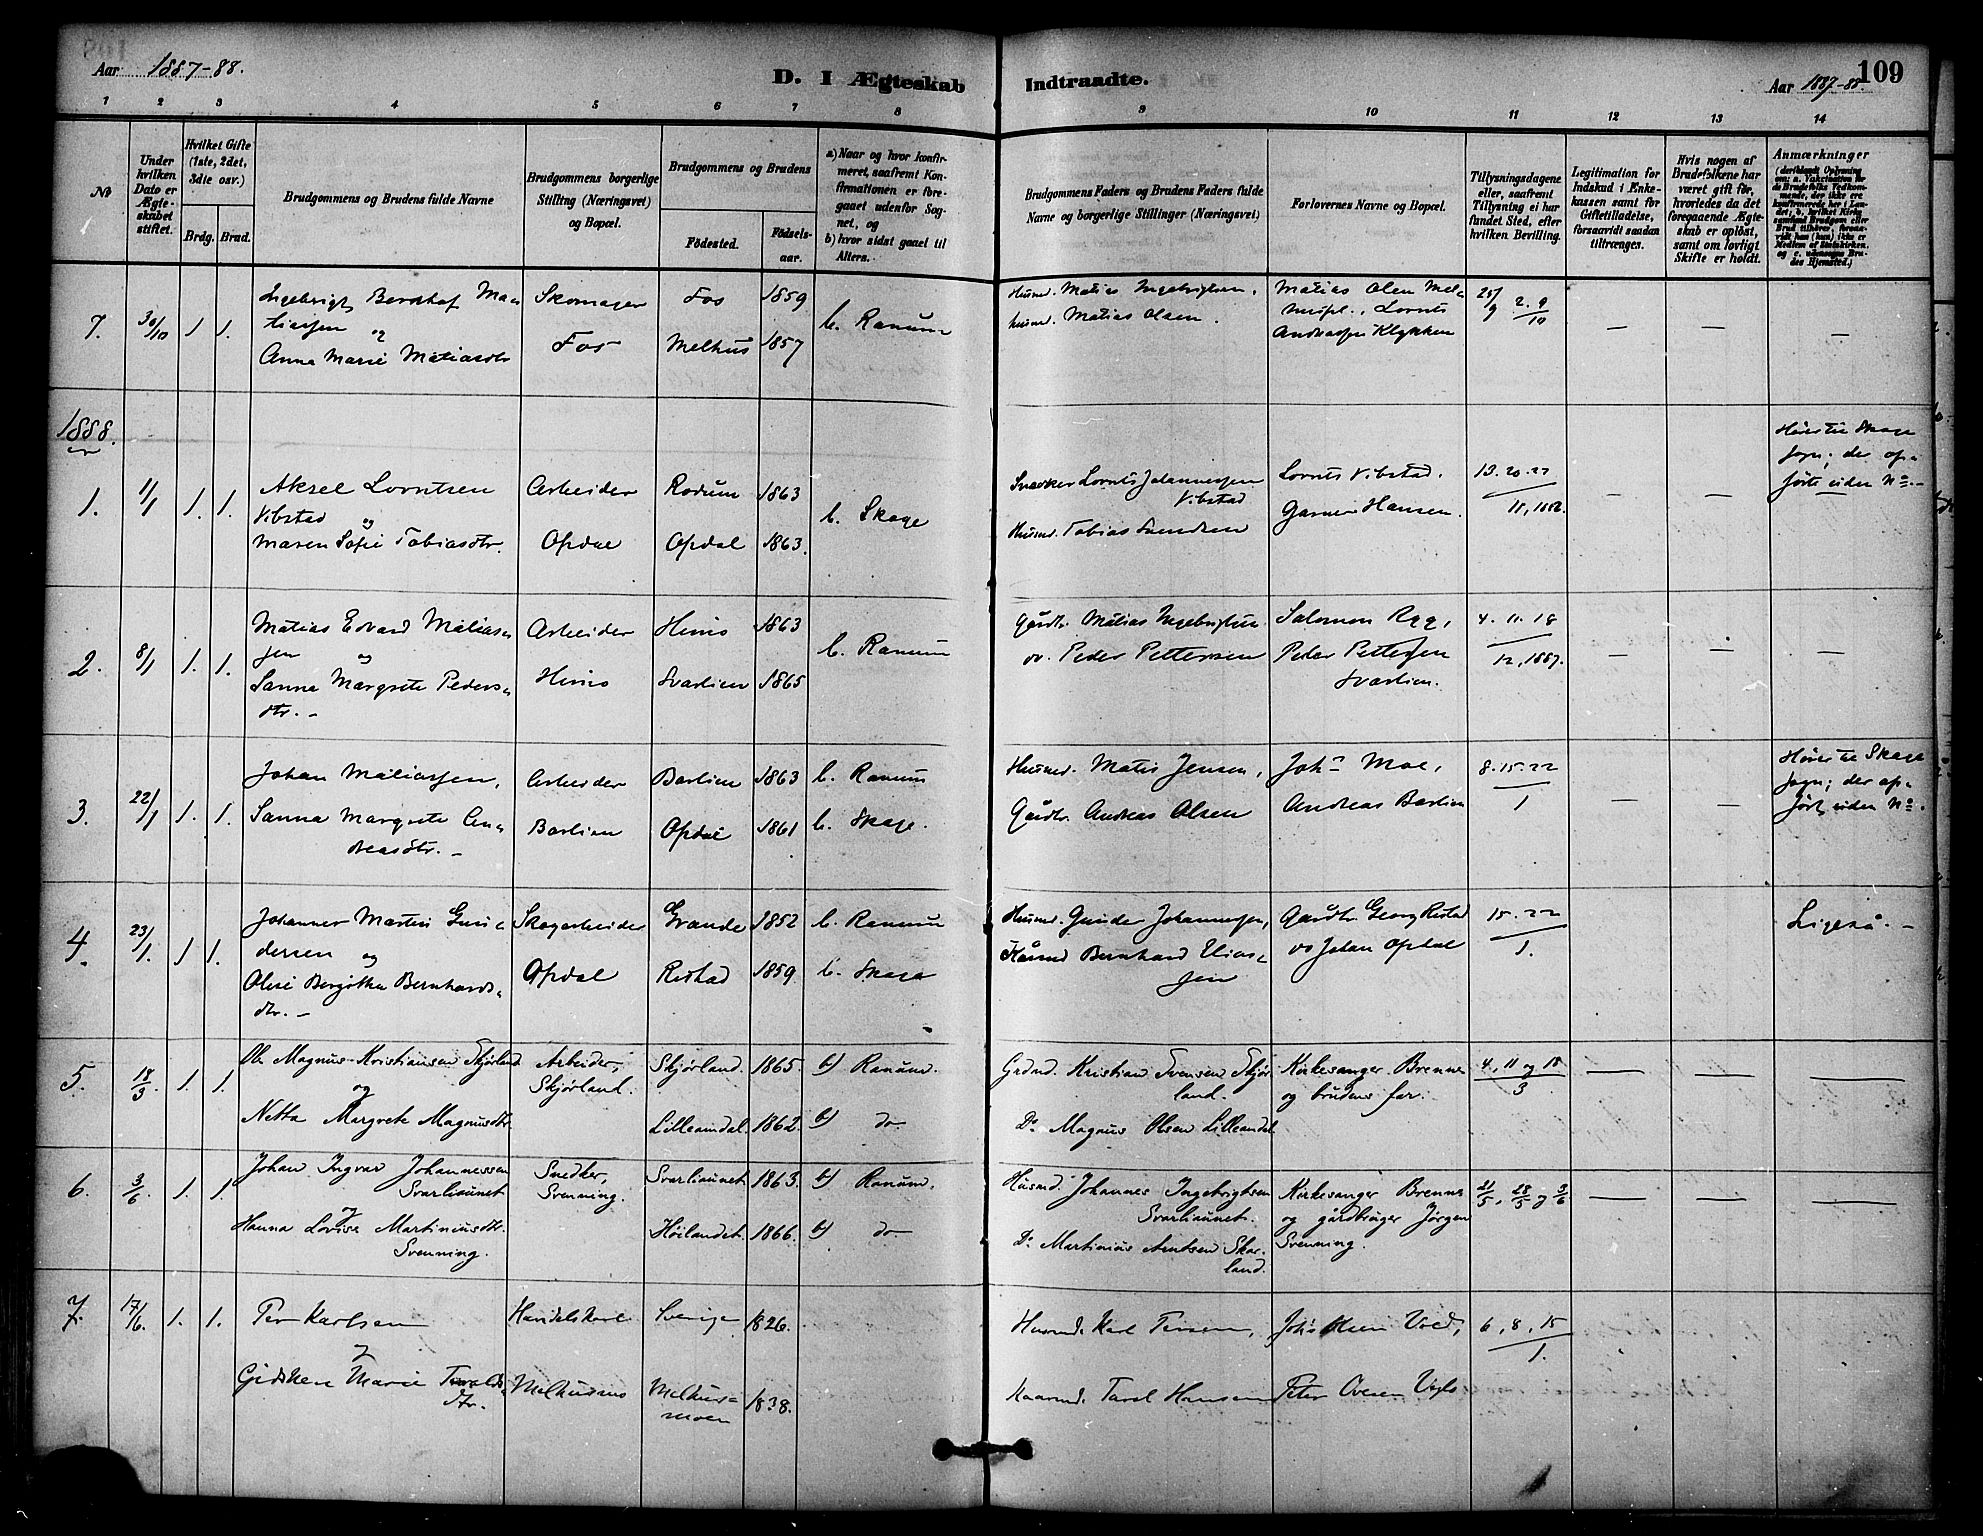 Aar 1887-88.
D. I Ægteskab Indtraadte.
Aar 1887-88.
109
1 2 3 4 5 6 7 8 9 10 11 12 13 14
No
Under hvilken Dato er Ægteskabet stiftet.
Hvilket Gifte (1ste, 2det, 3die osv.)
Brdg. Brud.
Brudgommens og Brudens fulde Navne
Brudgommens borgerlige Stilling (Næringsvei) og Bopæl.
Brudgommens og Brudens
Fødested. Fødselsaar.
a) Naar og hvor konfirmeret, saafremt Konfirmationen er foregaaet udenfor Sognet, og
b) hvor sidst gaaet til Alters.
Brudgommens Faders og Brudens Faders fulde Navne og borgerlige Stillinger (Næringsvei)
Forlovernes Navne og Bopæl.
Tillysningsdagene eller, saafremt Tillysning ei har fundet Sted, efter hvilken Bevilling.
Legitimation for Indskud i Enkekassen samt for Giftetilladelse, forsaavidt saadan tiltrænges.
Hvis nogen af Brudefolkene har været gift før, hvorledes da det foregaaende Ægteskab er opløst, samt om lovligt Skifte er holdt.
Anmærkninger
7. 30/10 1. 1. Ingebrigt Matiassen og Anna Marie Matiasdtr
Skomager Fos
Fos 1859
Melhus 1857
b. Ranum
Husmd. Matias Ingebrigtsen.
Husmd. Matias Olsen.
Matias Olsen Lornts Andreassen Klykken
25/9 2. 9/10
— — —
1888.
1. 1/1 1. 1. Aksel Lorntsen Vibstad og Maren Sofie Tobiasdtr.
Arbeider Opdal
Rodum 1863
Opdal 1863.
b. Skage
Snedker Lornts Johannessen Vibstad
Husmd. Tobias Svendsen
Lornts Vibstad.
Hansen.
— —
Hører til Skage sogn; der opført uden No. —
2. 8/1 1. 1. Matias Edvard Matiassen og Sanna Margrete Pedersdtr. —
Arbeider Himo
Himo 1863
Svarlien 1865
b. Ranum
Gårdbr. Matias Ingebrigtsen
do. Peder Pettersen
Salomon Rygg,
Peter Pettersen Svarlien.
4. 11. 18/12, 1887.
— — —
3. 22/1 1. 1. Johan Matiassen,
Sanna Margrete Andreasdtr. —
Arbeider Barlien
Barlien 1863
Opdal 1861
b. Ranum
b. Skage.
Husmd. Matis Jensen,
Gårdbr. Andreas Olsen
John Moe,
Andreas Barlien
8. 15. 22/1
— —
Hører til Skage sogn; der opført uden No. —
4. 23/1. 1 1. Johannes Martin Gundersen og Olise Bergitha Bernhardsdtr. —
Skogarbeider Opdal
Grande 1852
Ristad 1859
b. Ranum
b. Skage
Husmd. Gunder Johannessen,
Kårmd Bernhard Eliassen
Gårdbr. Georg Ristad
do Johan Opdal
15. 22/1.
Ligeså. —
5. 18/3 1. 1. Ole Magnus Kristiansen Skjørland og Netta Margrete Magnusdtr.
Arbeider, Skjørland.
Skjørland. 1865.
Lilleamdal. 1862.
b) Ranum.
b) do
Grdmd. Kristian Svensen Skjørland.
Do. Magnus Olsen Lilleamdal
Kirkesanger Brenne og brudens far.
4, 11 og 18/3
— — —
6. 3/6. 1. 1. Johan Ingvar Johannessen Svarliaunet og Hanna Lovise Martiniusdtr. Svenning.
Snedker, Svenning.
Svarliaunet 1863.
Høilandet. 1866.
b) Ranum.
b) do
Husmd. Johannes Ingebrigtsen Svarliaunet.
Do. Martinius Arntsen Skarland.
Kirkesanger Brenne og gårdbruger Jørgen Svenning.
21/5, 28/5 og 3/6
— — —
7. 17/6. 1. 1. Per Karlsen og Gidsken Marie Taraldsdtr.
Handelskarl Melhusmo
Sverige 1826.
Melhusmoen 1838.
Husmd. Karl Persen,
Kaarmd. Tarald Hansen
Johs Olsen Vold,
Peter Ovesen
6, 8, 15/1.